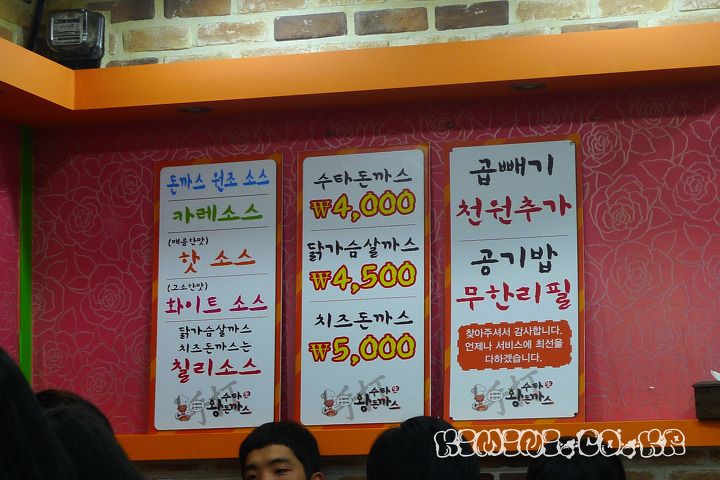 돈까스 원조 소스
카레소스
(매콤한맛)
핫 소스
(고소한맛)
화이트 소스
닭가슴살까스
치즈돈까스는
칠리소스
수타
왕돈까스
수타돈까스
₩4,000
닭가슴살까스
₩4,500
치즈돈까스
₩5,000
수타
왕돈까스
곱빼기
천원추가
공기밥
무한리필
찾아주셔서 감사합니다.
언제나 서비스에 최선을
다하겠습니다.
수타
왕돈까스
KIMINI.CO.KR